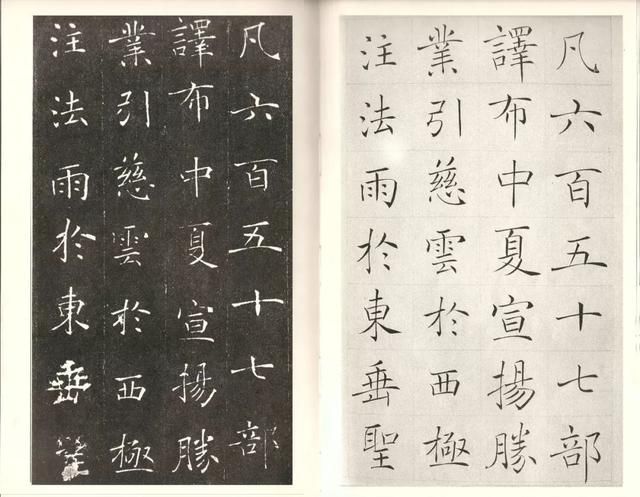 凡六百五十七部
譯布中夏宣揚勝
業引慈雲於西極
注法雨於東垂聖
凡六百五十七部
譯布中夏宣揚勝
業引慈雲於西極
注法雨於東垂